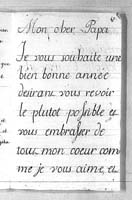 Mon cher Papa
Je vous souhaite une
bien bonne année
desirant vous revoir
le plutot possible et
vous embrasser de
tous mon coeur com
me je vous aime, et